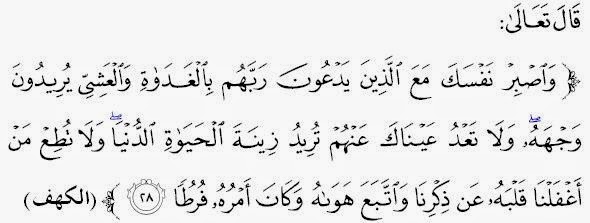 قَالَ تَعَالَىٰ:
﴿ وَٱصۡبِرۡ نَفۡسَكَ مَعَ ٱلَّذِينَ يَدۡعُونَ رَبَّهُم بِٱلۡغَدَوٰةِ وَٱلۡعَشِيِّ يُرِيدُونَ
وَجۡهَهُۥۖ وَلَا تَعۡدُ عَيۡنَاكَ عَنۡهُمۡ تُرِيدُ زِينَةَ ٱلۡحَيَوٰةِ ٱلدُّنۡيَاۖ وَلَا تُطِعۡ مَنۡ
أَغۡفَلۡنَا قَلۡبَهُۥ عَن ذِكۡرِنَا وَٱتَّبَعَ هَوَىٰهُ وَكَانَ أَمۡرُهُۥ فُرُطٗا ٢٨ ﴾ (الكهف)